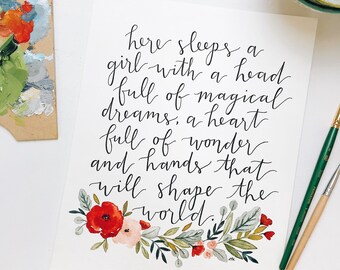 here sleeps a
girl with a head
full of magical
dreams, a heart
full of wonder
and hands that
will shape the
world.